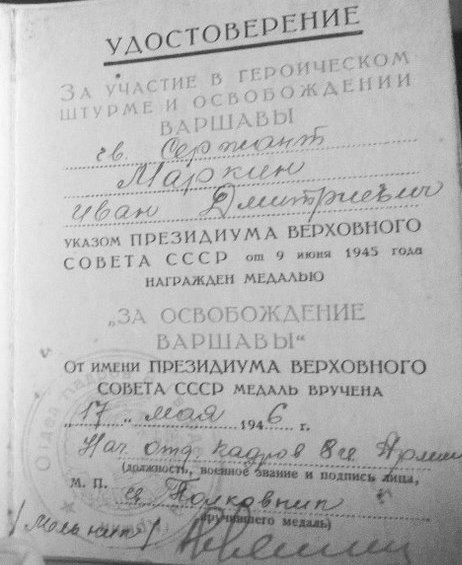 УДОСТОВЕРЕНИЕ
ЗА УЧАСТИЕ В ГЕРОИЧЕСКОМ
ШТУРМЕ И ОСВОБОЖДЕНИИ
ВАРШАВЫ
гв. Сержант
Маркин
Иван Дмитриевич
УКАЗОМ ПРЕЗИДИУМА ВЕРХОВНОГО
СОВЕТА СССР от 9 июня 1945 года
НАГРАЖДЕН МЕДАЛЬЮ
„ЗА ОСВОБОЖДЕНИЕ
ВАРШАВЫ“
ОТ ИМЕНИ ПРЕЗИДИУМА ВЕРХОВНОГО
СОВЕТА СССР МЕДАЛЬ ВРУЧЕНА
„17„ мая 1946 г.
Нач отд. кадров 8 гв. Армии
(должность, военное звание и подпись лица,
М. П. гв. Полковник
вручившего медаль)